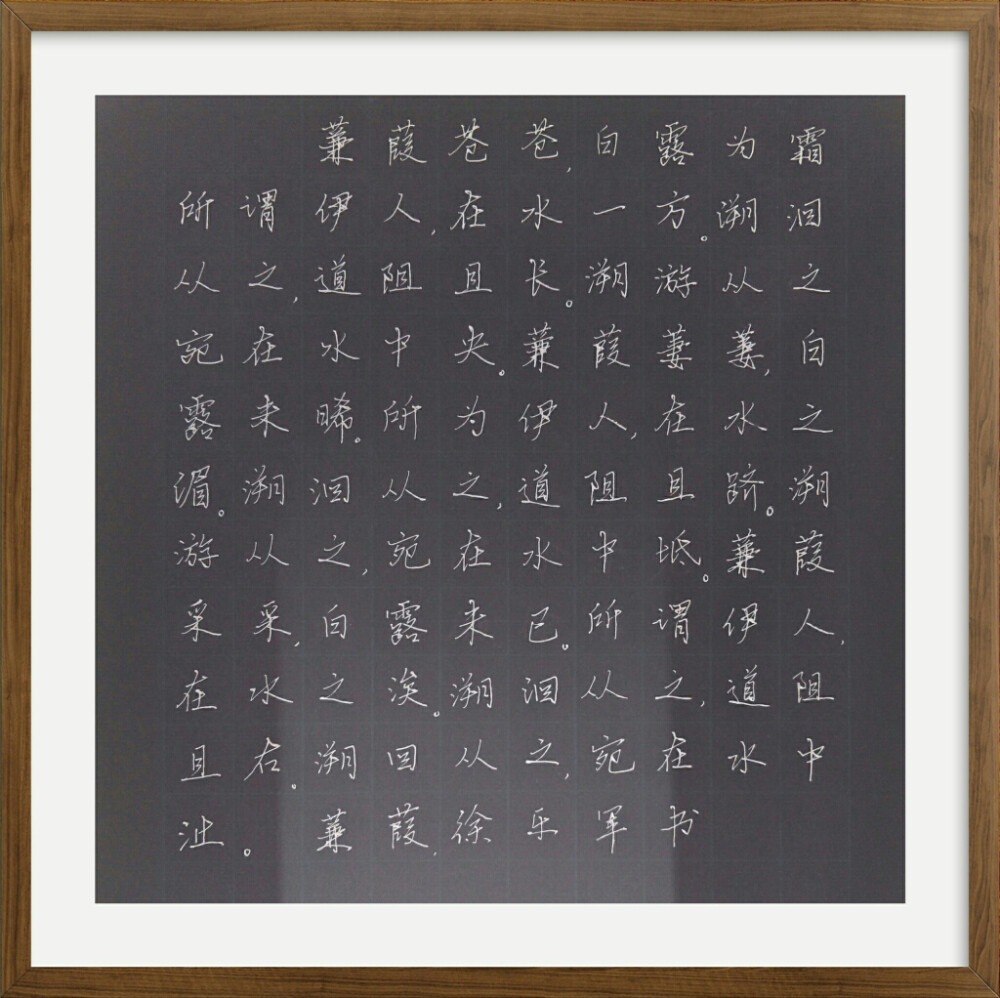 蒹葭苍苍,白露为霜
所谓伊人,在水一方。溯洄
从之,道阻且长。溯游从之
宛在水中央。蒹葭萋萋,白
露未晞。所为伊人,在水之
湄。溯洄从之,道阻且跻。溯
游从之,宛在水中坻。蒹葭
采采,白露未已。所谓伊人,
在水之涘。溯洄从之,道阻
且右。溯回从之,宛在水中
沚。蒹葭,徐乐军书